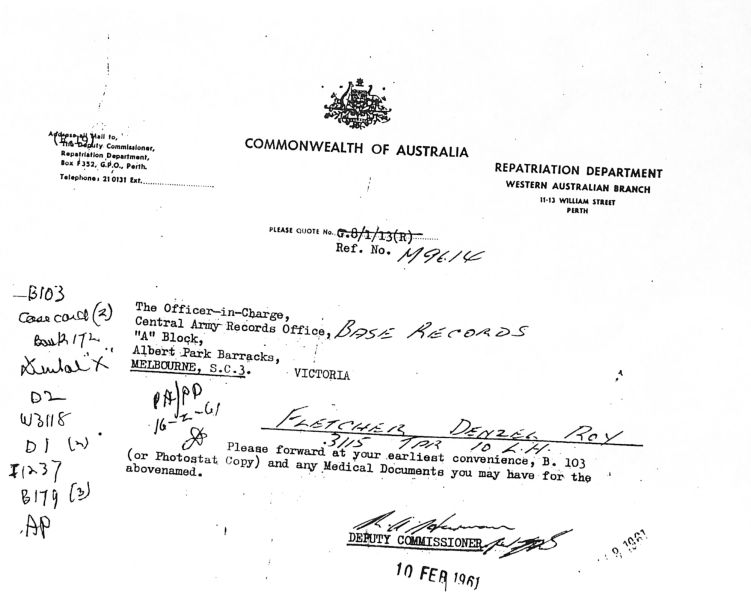 Address all Mail to,
The Deputy Commissioner,
Repatriation Department,
Box F352, G.P.O., Perth.
Telephone: 21 0131 Ext.
COMMONWEALTH OF AUSTRALIA
REPATRIATION DEPARTMENT
WESTERN AUSTRALIAN BRANCH
11-13 WILLIAM STREET
PERTH
PLEASE QUOTE No. G.8/1/13(R)
Ref. No. M9614
B103
Case card (2)
Book 172
Dental "X"
D2
W3118
D1 (2)
I1237
B179 (3)
AP
The Officer-in-Charge,
Central Army Records Office, BASE RECORDS
"A" Block,
Albert Park Barracks,
MELBOURNE, S.C.3. VICTORIA
PA/PP
16-2-61
FLETCHER DENZEL ROY
3115 TPR 10 L.H.
Please forward at your earliest convenience, B. 103
(or Photostat Copy) and any Medical Documents you may have for the
abovenamed.
DEPUTY COMMISSIONER
10 FEB 1961
1961